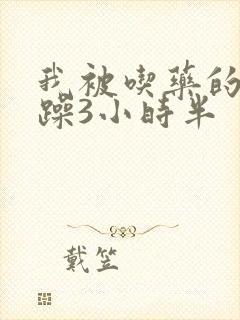 我被喫藥的
躁3小時半
戴笠